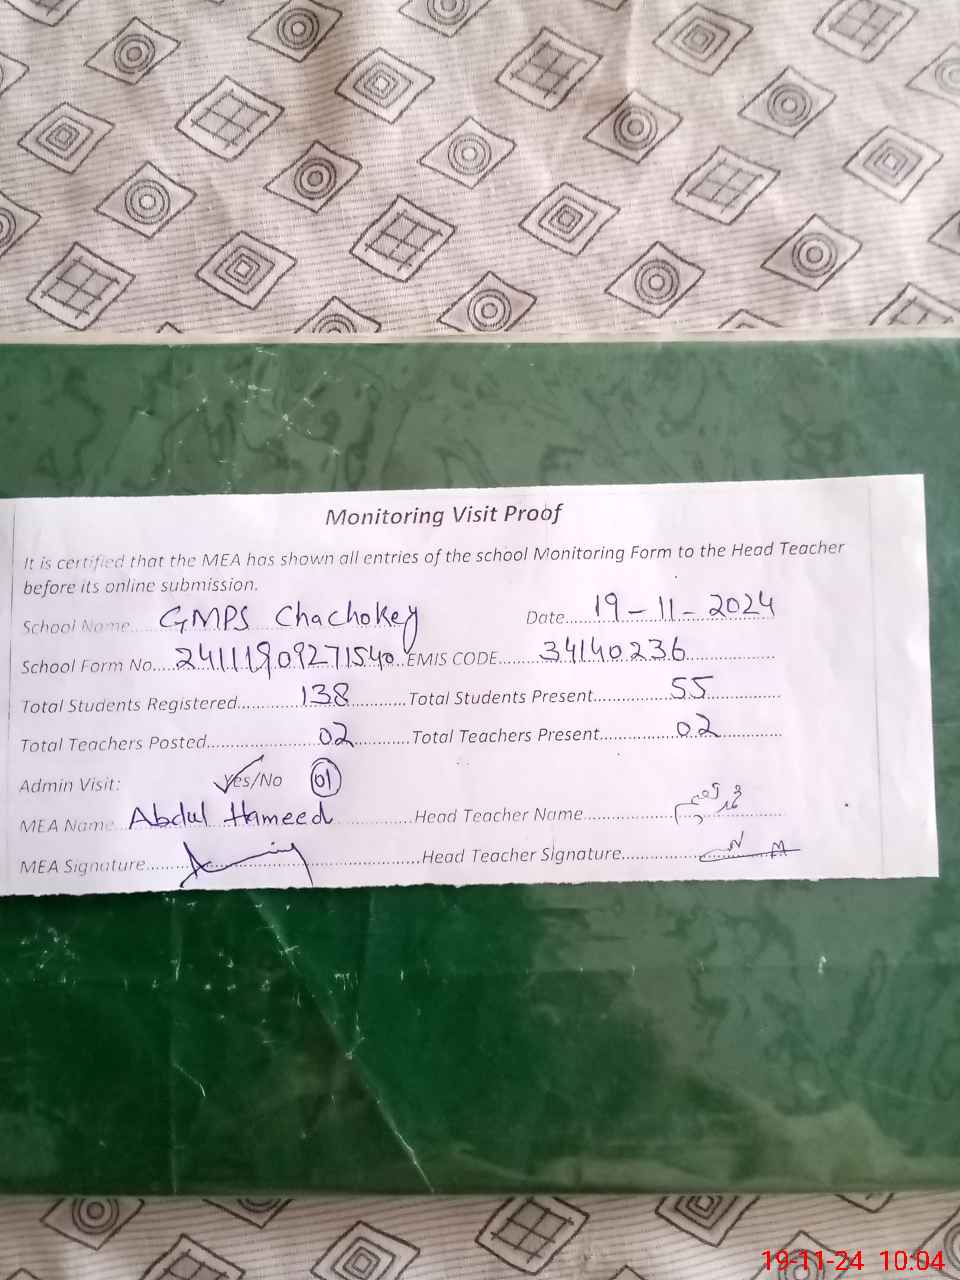 Monitoring Visit Proof
It is certified that the MEA has shown all entries of the school Monitoring Form to the Head Teacher
before its online submission.
School Name.... GMPS Chachokey Date.... 19-11-2024
School Form No.. 24111909271540 EMIS CODE....... 34140236
Total Students Registered........... 138 ...........Total Students Present............. 55
Total Teachers Posted................... 02 ...........Total Teachers Present............. 02
Admin Visit: Yes/No 01
MEA Name Abdul Hameed ................Head Teacher Name
MEA Signature..............................Head Teacher Signature..............
19-11-24 10:04